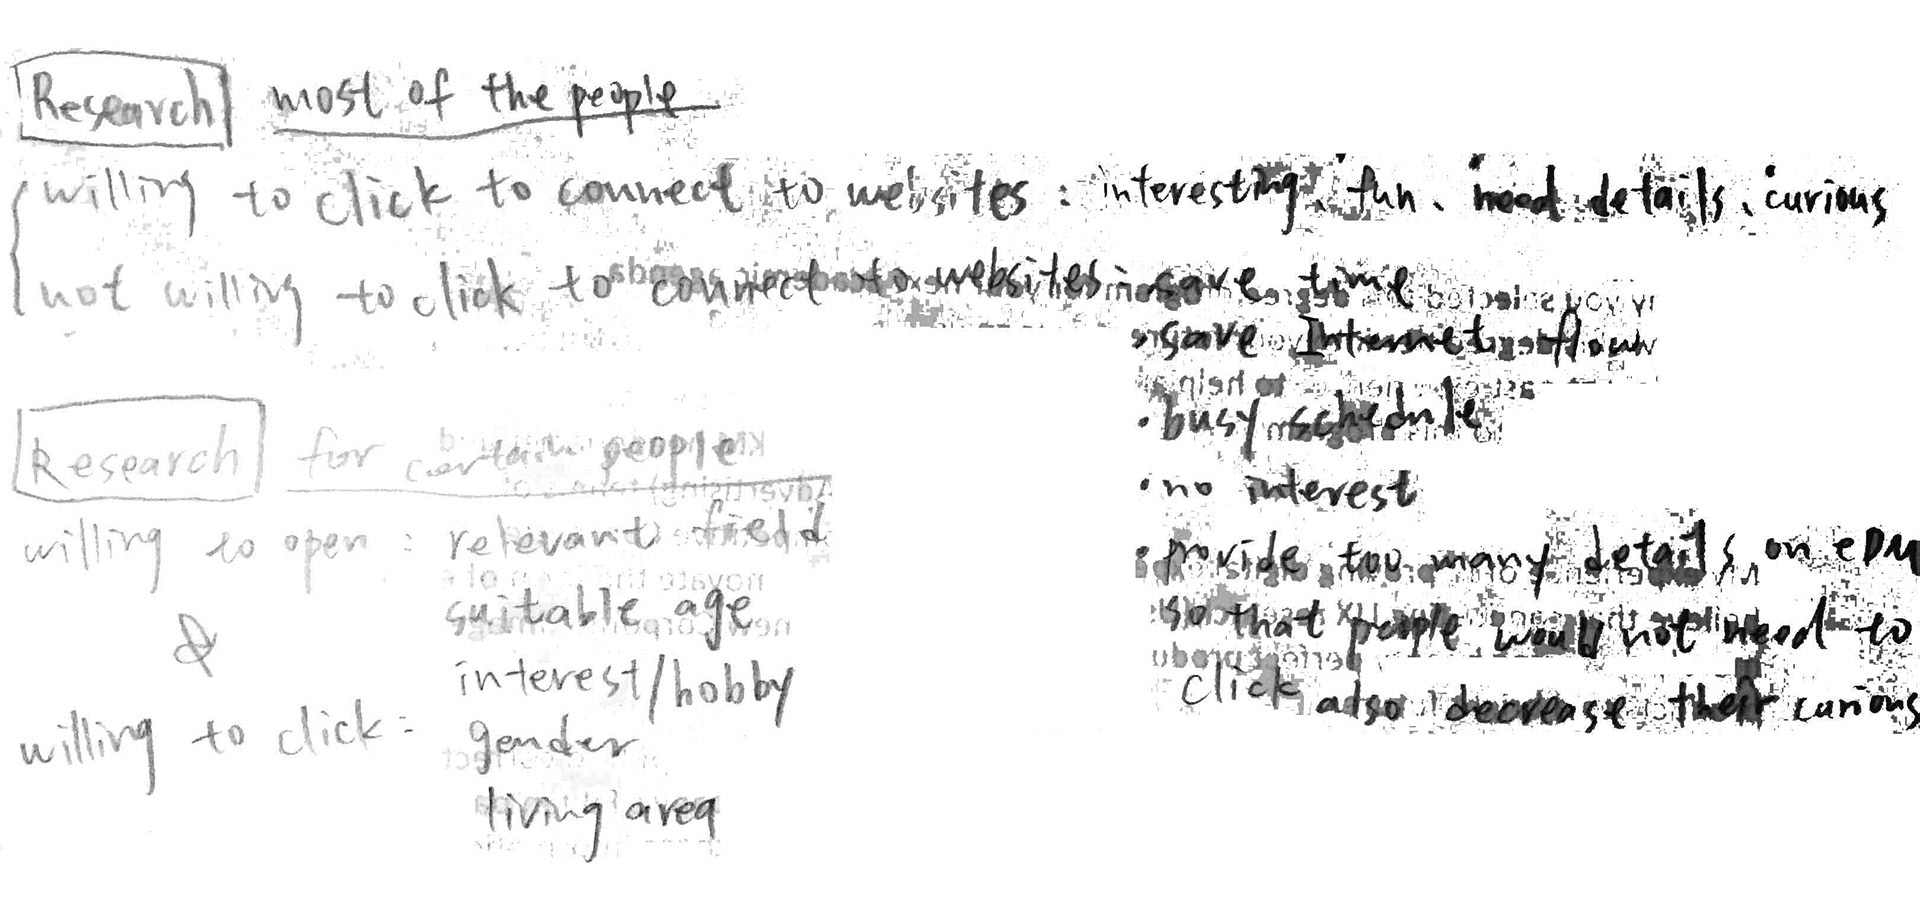 Research most of the people
willing to click to connect to websites : interesting、fun、need details、curious
not willing to click to connect to websites : · save time
· save Internet flow
· busy schedule
· no interest
· provide too many details on eDM
so that people would not need to
click also decrease their curious
Research for certain people
willing to open : relevant field
suitable age
&
interest/hobby
willing to click : gender
living area